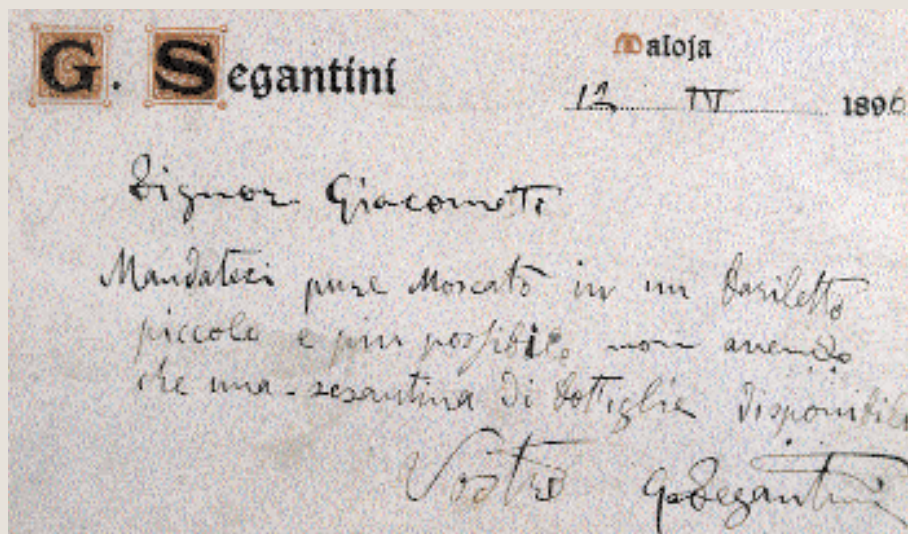 G. Segantini
Maloja
12 IV 1896
Signor Giacometti
Mandateci pure Moscato in un bariletto
piccolo e più possibile, non avendo
che una sesantina di bottiglie disponibili
Vostro G. Segantini